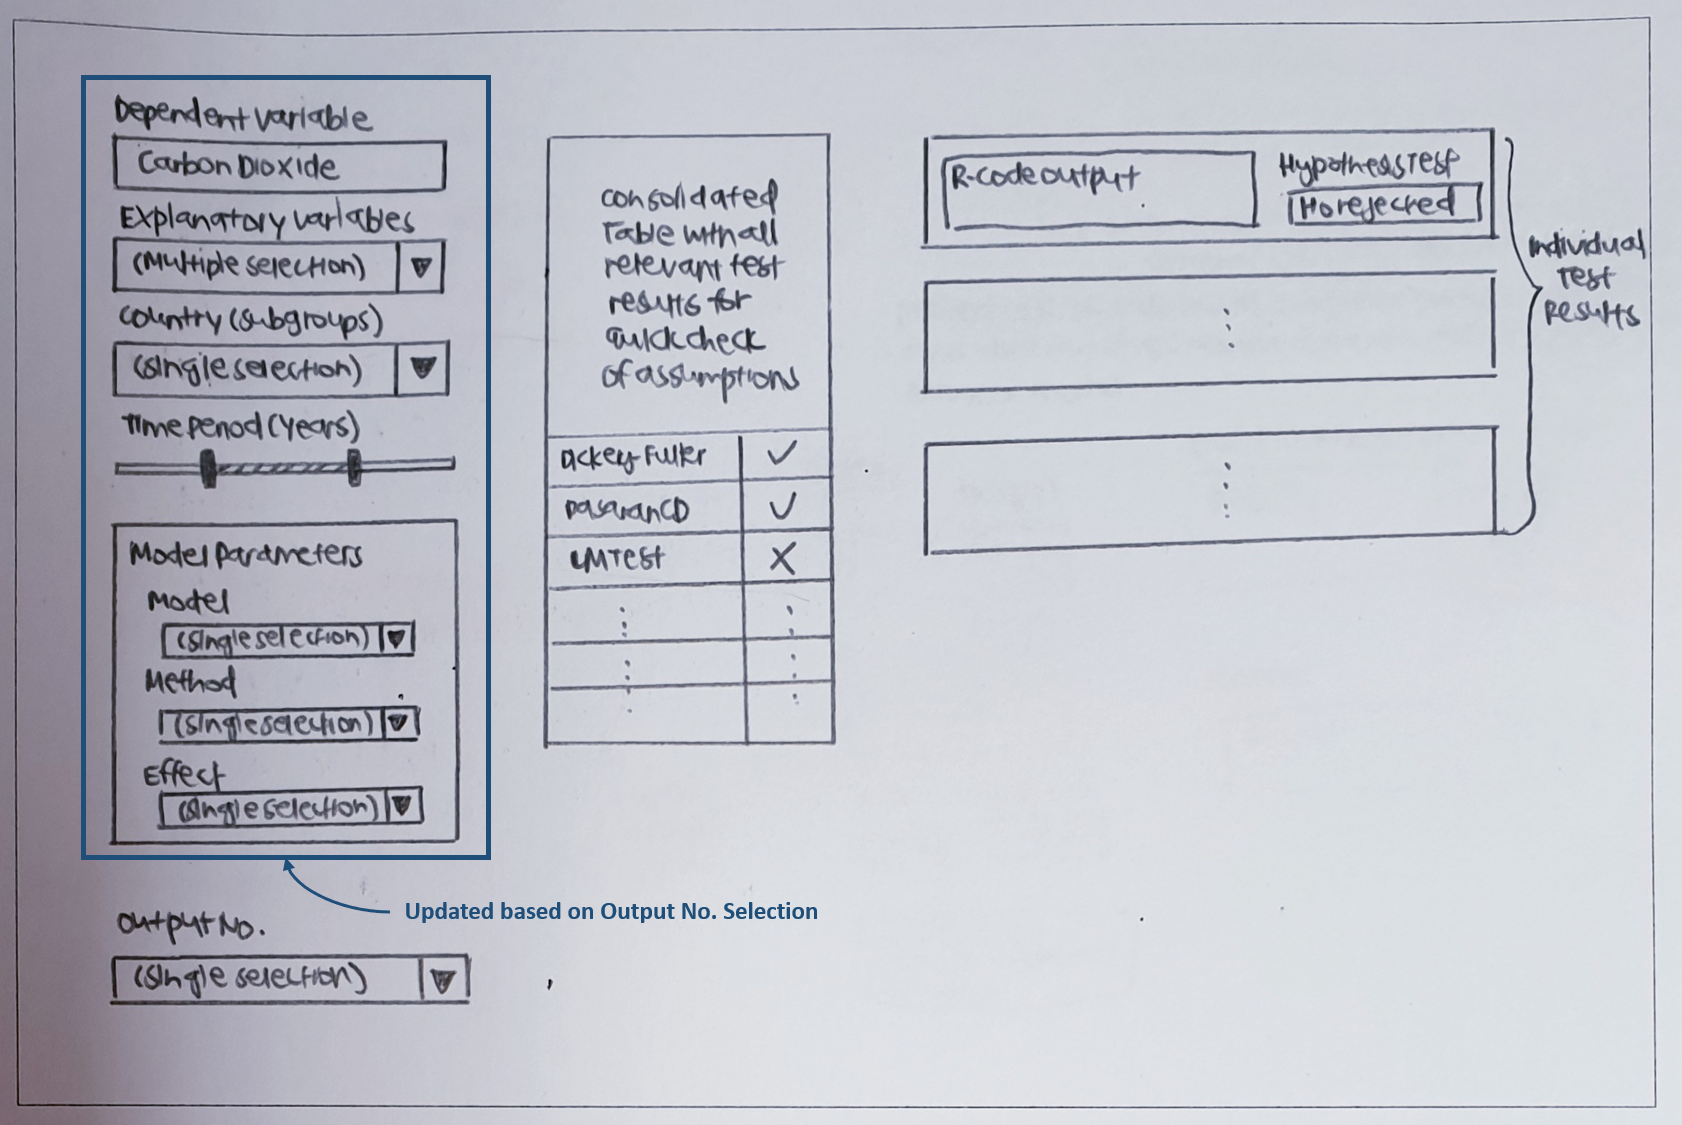 Dependent Variable
Carbon Dioxide
Explanatory variables
(Multiple selection)
Country (subgroups)
(single selection)
Time period (Years)
Model Parameters
Model
(single selection)
Method
(single selection)
Effect
(single selection)
Updated based on Output No. Selection
Output No.
(single selection)
consolidated
Table with all
relevant test
results for
quick check
of assumptions
Dickey-Fuller
PasaranCD
LM Test
R-code output
Hypothesis Test
Ho rejected
Individual
Test
Results